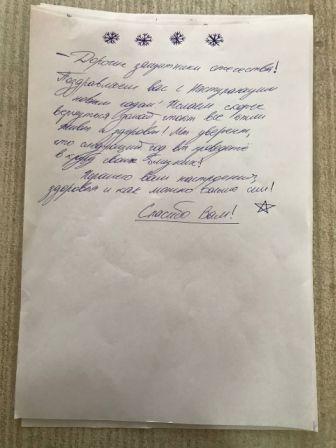 — Дорогие защитники отечества!
Поздравляем вас с Наступающим
новым годом! Желаем скорее
вернуться домой, чтобы все были
живы и здоровы! Мы уверены,
что следующий год вы проведёте
в кругу своих близких!
Хорошего вам настроения,
здоровья и как можно больше сил!
Спасибо Вам!